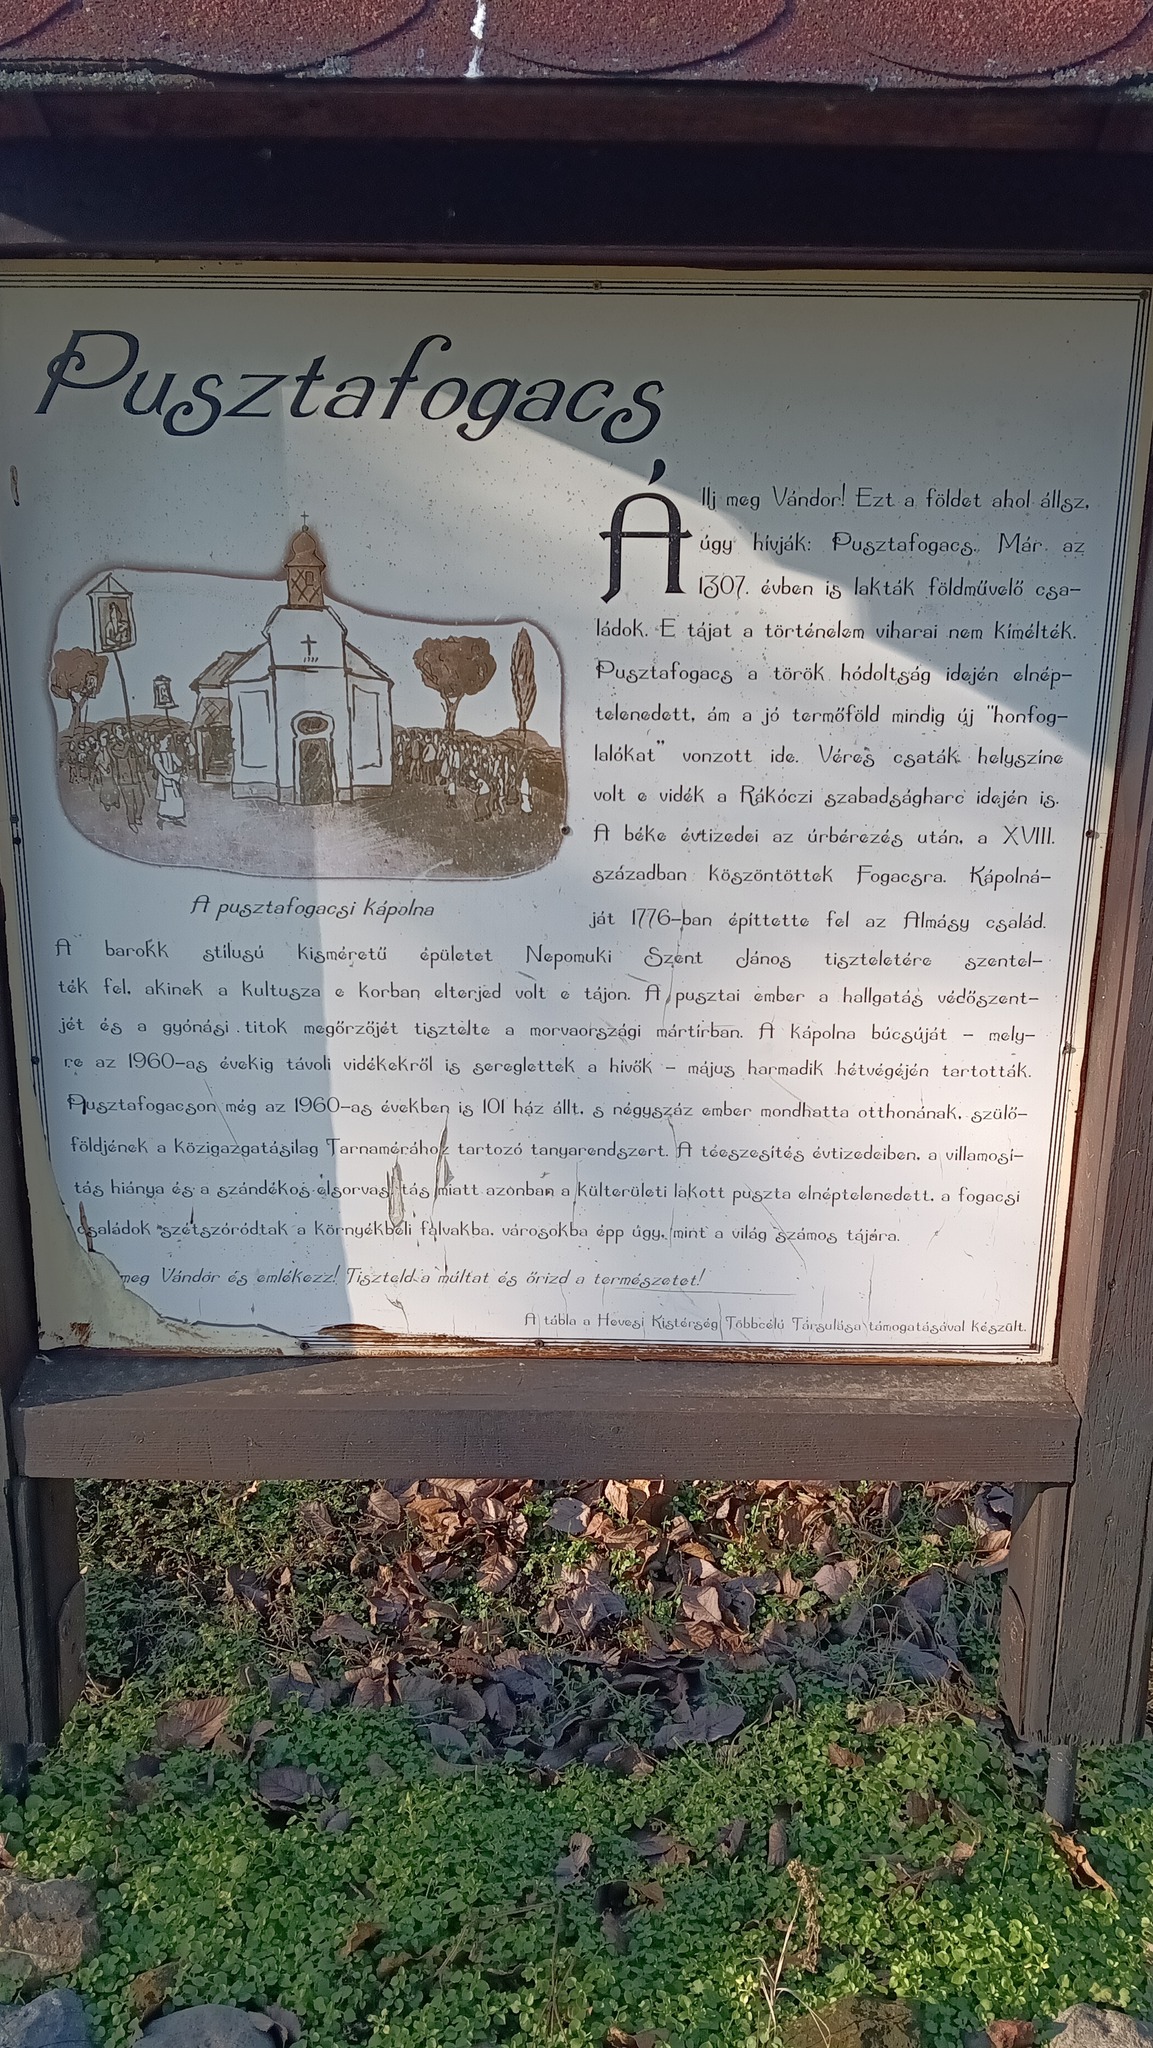 Pusztafogacs
Állj meg Vándor! Ezt a földet ahol állsz,
úgy hívják: Pusztafogacs. Már az
1307. évben is lakták földművelő csa-
ládok. E tájat a történelem viharai nem kímélték.
Pusztafogacs a török hódoltság idején elnép-
telenedett, ám a jó termőföld mindig új "honfog-
lalókat" vonzott ide. Véres csaták helyszíne
volt e vidék a Rákóczi szabadságharc idején is.
A béke évtizedei az úrbérezés után, a XVIII.
században köszöntöttek Fogacsra. Kápolná-
ját 1776-ban építtette fel az Almásy család.
A pusztafogacsi kápolna
A barokk stílusú kisméretű épületet Nepomuki Szent János tiszteletére szentel-
ték fel, akinek a kultusza e korban elterjed volt e tájon. A pusztai ember a hallgatás védőszent-
jét és a gyónási titok megőrzőjét tisztelte a morvaországi mártírban. A kápolna búcsúját - mely-
re az 1960-as évekig távoli vidékekről is sereglettek a hívők - május harmadik hétvégéjén tartották.
Pusztafogacson még az 1960-as években is 101 ház állt, s négyszáz ember mondhatta otthonának, szülő-
földjének a közigazgatásilag Tarnamérához tartozó tanyarendszert. A téeszesítés évtizedeiben, a villamosí-
tás hiánya és a szándékos elsorvasztás miatt azonban a külterületi lakott puszta elnéptelenedett, a fogacsi
családok szétszóródtak a környékbeli falvakba, városokba épp úgy, mint a világ számos tájára.
meg Vándor és emlékezz! Tiszteld a múltat és őrizd a természetet!
A tábla a Hevesi Kistérség Többcélú Társulása támogatásával készült.